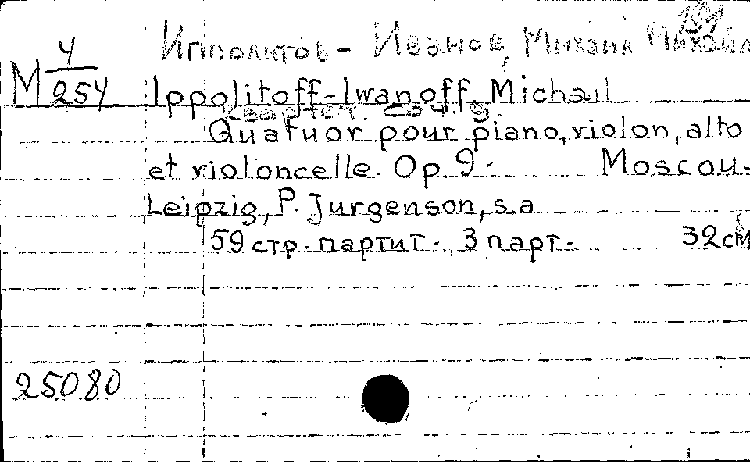 Ипполитов - Иванов, Михаил Михайл
М 4/254
Ippolitoff-Iwanoff, Michail
Quatuor pour piano, violon, alto
et violoncelle. Op. 9. Moscou-
Leipzig, P. Jurgenson, s.a
59 стр. партит. 3 парт. 32 см
25080